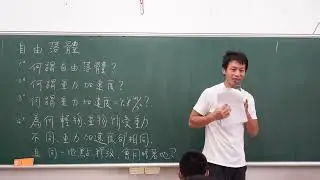 自由落體
1° 何謂自由落體?
2° 何謂重力加速度?
3° 何謂重力加速度=9.8
4° 為何輕物、重物所受重力
不同,重力加速度卻相同,
且同一地點釋放,會同時落地?